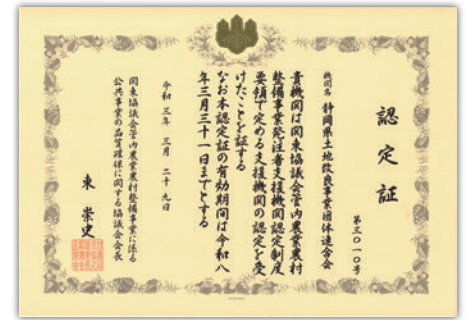 認定証
第三〇一〇号
機関名 静岡県土地改良事業団体連合会
貴機関は関東協議会管内農業農村
整備事業発注者支援機関認定制度
要領で定める支援機関の認定を受
けたことを証する
なお本認定証の有効期間は令和八
年三月三十一日までとする
令和三年 三月 二十九日
関東協議会管内農業農村整備事業に係る
公共事業の品質確保に関する協議会会長
東 崇史